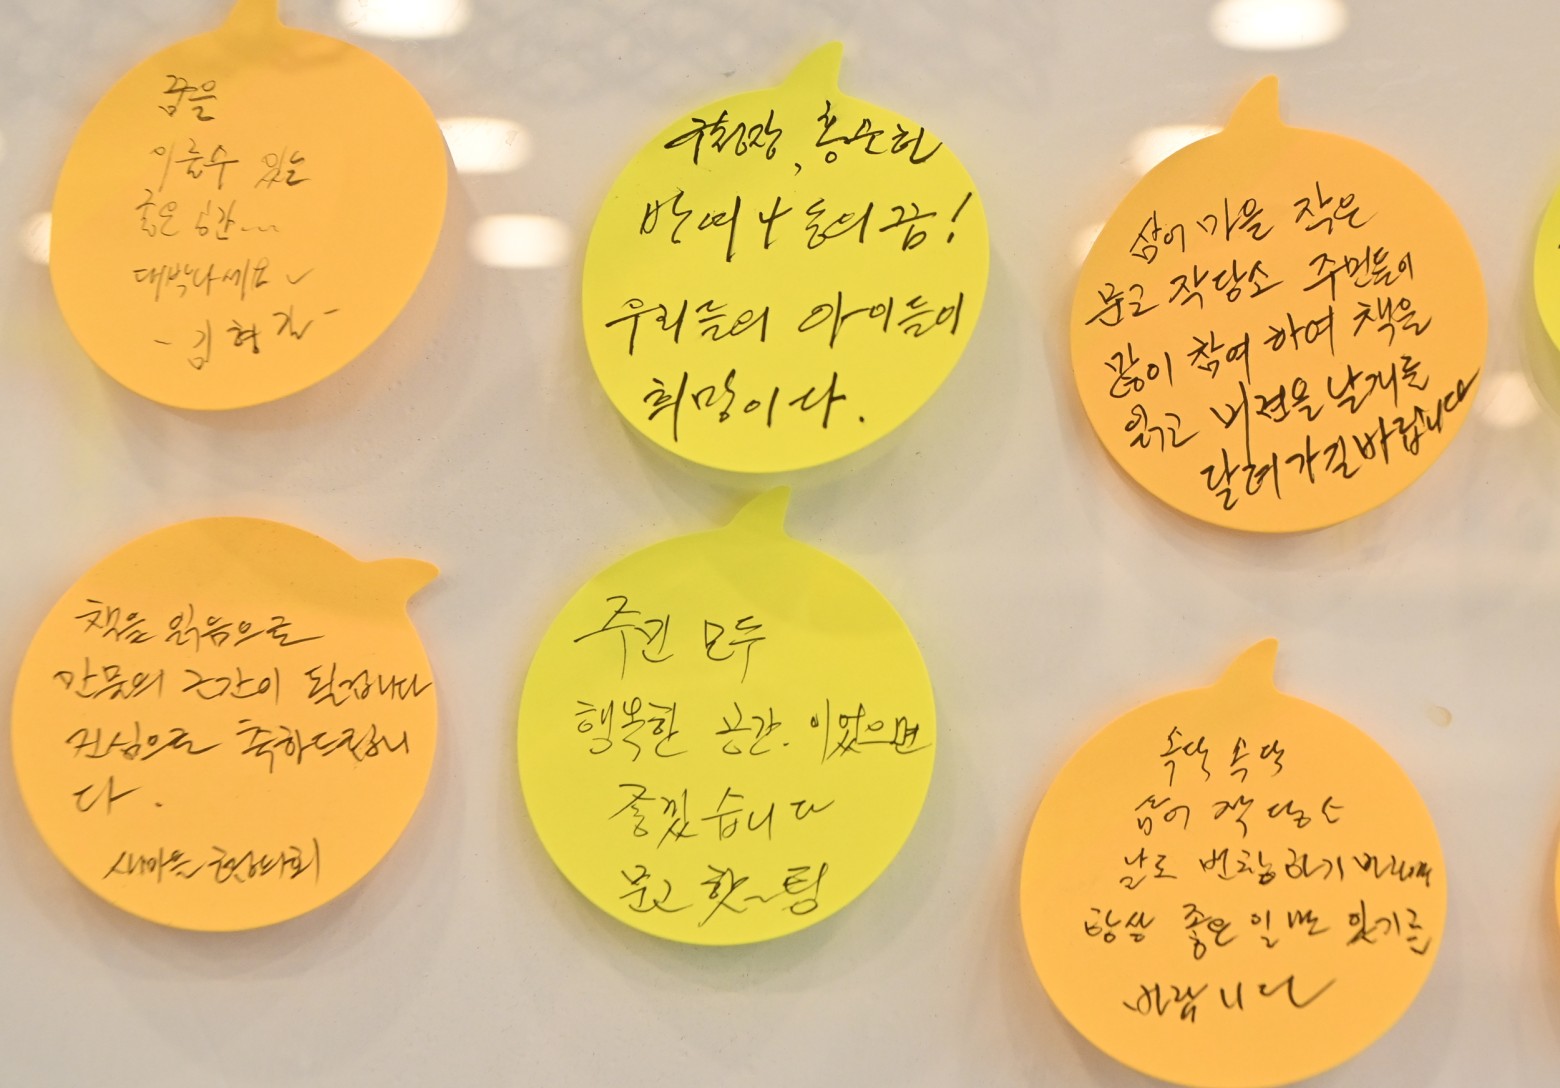 꿈을
이룰수 있는
좋은 공간~~
대박나세요
- 김형길 -
구청장, 홍순헌
반여 4동의 꿈!
우리들의 아이들이
희망이다.
삼어 마을 작은
문고 작당소 주민들이
많이 참여 하여 책을
읽고 비젼을 날개를
달혀 가길 바랍니다
책을 읽음으로
만물의 근간이 될겁니다
진심으로 축하드립니
다.
새마을
주민 모두
행복한 공간. 이었으면
좋겠습니다
문고 핫~팅
속닥 속닥
삼어 작당소
날로 번창하기 바라며
항상 좋은 일만 있기를
바랍니다